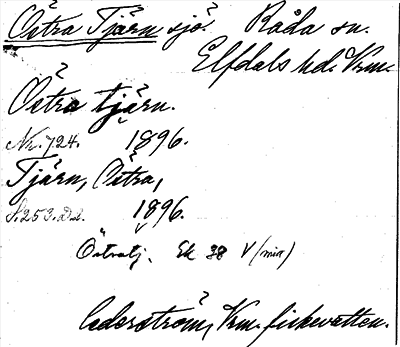 Östra Tjärn sjö. Råda sn.
Elfdals hd. Vrm.
Östra tjärn.
Nr. 724. 1896.
Tjärn, Östra,
S. 253. D.2. 1896.
Östratj. Ek 38 V (mia)
Cederström, Vrm. fiskevatten.